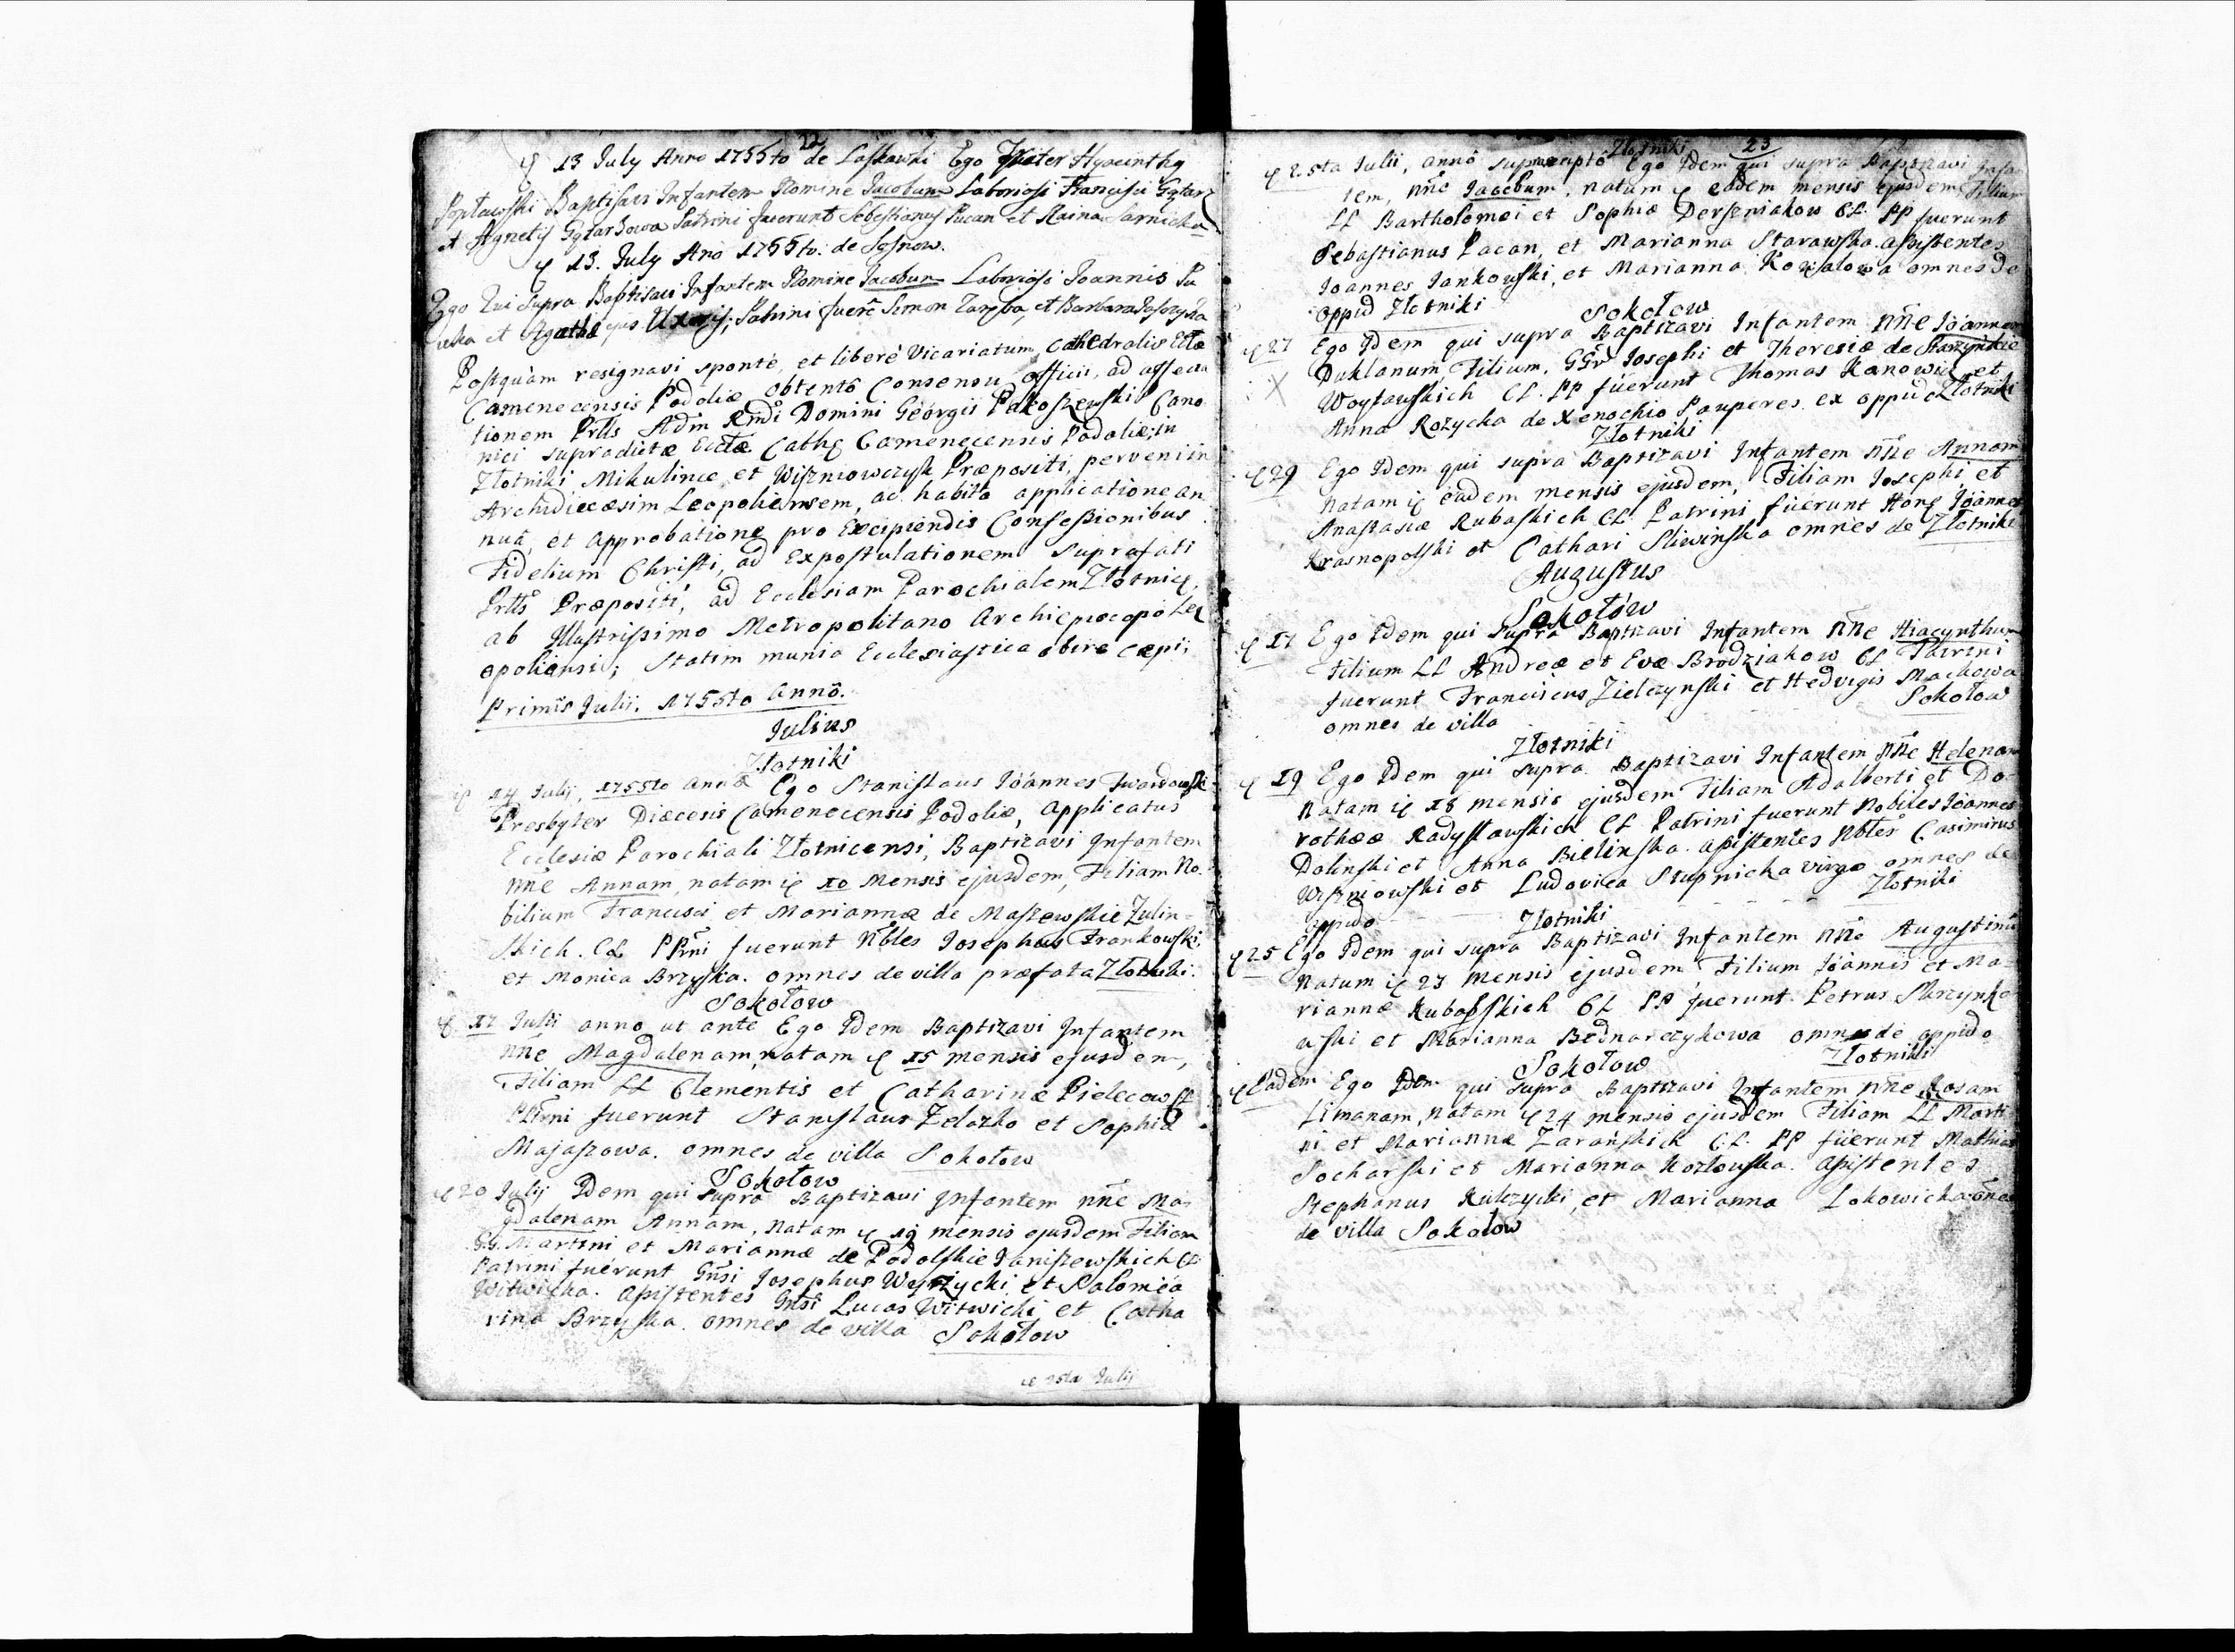 22
13 July Anno 1755to de Laskawki Ego Frater Hyacinthg
Poplawski Baptisavi Infantem Nomine Jacobum Laboriosi Francisci
et Agnetis Patrini fuerunt Sebestianus Pucan et Raina Sarnicka
13. July Ano 1755to. de Sosnow.
Ego Qui Supra Baptisavi Infantem Nomine Jacobum Laboriosi Joannis
et Agatha ejus Uxoris; Patrini fuer̃ Simon Zaręba, et Barbara
Postquàm resignavi sponte, et liberè Vicariatum Cathedralis Ectæ
Camenecensis Podoliæ obtentô Consensu officii, ad assecu
tionem Prlls Adm Rndi Domini Georgii Pakoszewski Cano
nici supradictæ Ecclæ Cathę Camenecensis Podoliæ, in
Złotniki Mikulince et Wiszniowczyk Præpositi, perveni in
Archidiœcæsim Leopoliensem, ac habita applicatione an
nuâ, et Approbatione pro Excipiendis Confessionibus
Fidelium Christi, ad Expostulationem suprafati
Prlls Præpositi, ad Ecclesiam Parochialem Złotnicę,
ab Illustrissimo Metropolitano Archiepiscopo Le
opoliensi; statim munia Ecclesiastica obire cæpi;
Primis Julii. 1755to Annô.
Julius
Złotniki
14 Julij, 1755to annô Ego Stanislaus Jòannes Twardowski
Presbyter Diæcesis Camenecensis Podoliæ, Applicatus
Ecclesiæ Parochiali Złotnicensi, Baptizavi Infantem
nñe Annam, natam 10 Mensis ejusdem, Filiam No
bilium Francisci et Mariannæ de Maszewskie Zulin=
skich. CL PPrni fuerunt Nbles Josephus Frankowski,
et Monica Brzyska. omnes de villa præfata Złotniki.
Sokołow
17 Julii anno ut ante Ego Idem Baptizavi Infantem
nñe Magdalenam, natam 15 mensis ejusdem,
Filiam LL Clementis et Catharinæ Pielecowsk
PPrni fuerunt Stanislaus Zelazko et Sophia
Majaszowa. omnes de villa Sokołow
Sokołow
20 Julij Idem qui supra Baptizavi Infantem nñe Ma
gdalenam Annam, natam 19 mensis ejusdem Filiam
GG. Martini et Mariannæ de Podolskie Janiszewskich CL
Patrini fuerunt Gnsi Josephus Wyrzycki et Salomèa
Witwicka. Assistentes Gnsi Lucas Witwicki et Catha
rina Brzyska. omnes de villa Sokołow
25ta Julij
Złotniki 23
25ta Julii, annô suprascriptô Ego Idem qui supra Baptizavi Infan
tem, nñe Jacobum, natum eadem mensis ejusdem Filium
LL Bartholomæi et Sophiæ Derszniakow CL. PP fuerunt
Sebastianus Pacan, et Marianna Starawska. assistentes
Joannes Jankowski, et Marianna Kowalowa omnes de
oppid Złotniki
Sokołow
27 Ego Idem qui supra Baptizavi Infantem nñe Jòannem
Duklanum, Filium, GGr Josephi et Theresiæ de Starzynskie
X Woytauskich CL. PP fuerunt Thomas Kanowic et
Anna Rozycka de Xenochio Pauperes ex oppid Złotniki
Złotniki
29 Ego Idem qui supra Baptizavi Infantem nñe Annam
Natam eadem mensis ejusdem, Filiam Josephi, et
Anastasiæ Rubaskich CL. Patrini fuerunt Hone Jòannes
Krasnopolski et Cathari Sliwinska omnes de Złotniki
Augustus
Sokołów
17 Ego Idem qui supra Baptizavi Infantem nñe Hiacynthum
Filium LL Andreæ et Evæ Brodziakow CL Patrini
fuerunt Franciscus Zielczynski et Hedvigis Mackowa
omnes de villa Sokołow
Złotniki
19 Ego Idem qui supra Baptizavi Infantem nñe Helenam
Natam 18 mensis ejusdem Filiam Adalberti et Do-
rothææ Radyslauskich CL Patrini fuerunt Nobiles Jòannes
Dolinski et Anna Bielinska. assistentes Nbles Casimirus
Wiszniowski et Ludovica Stupnicka virgo omnes de
oppido Złotniki
Złotniki
25 Ego Idem qui supra Baptizavi Infantem nñe Augustinũ
Natum 23 mensis ejusdem Filium Jòannis et Ma-
riannæ Rubasskich CL PP fuerunt. Petrus Skrzynko
aski et Marianna Bednarczykowa omnes de oppido
Złotniki
Sokołow
Eadem Ego Idem qui supra Baptizavi Infantem nñe Rosam
Limanam, natam 24 mensis ejusdem Filiam LL Marti
ni et Mariannæ Zarańskich C.L. PP fuerunt Mathias
Socharski et Marianna Kozłowska. Assistentes
Stephanus Kulczycki, et Marianna Lokowicka oñes
de villa Sokołow